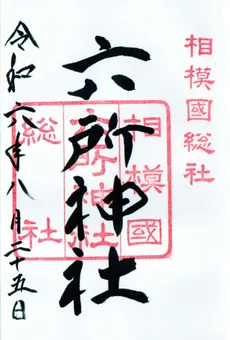 相模國総社
六所神社
相模國
六所神社
総社
令和六年八月二十五日